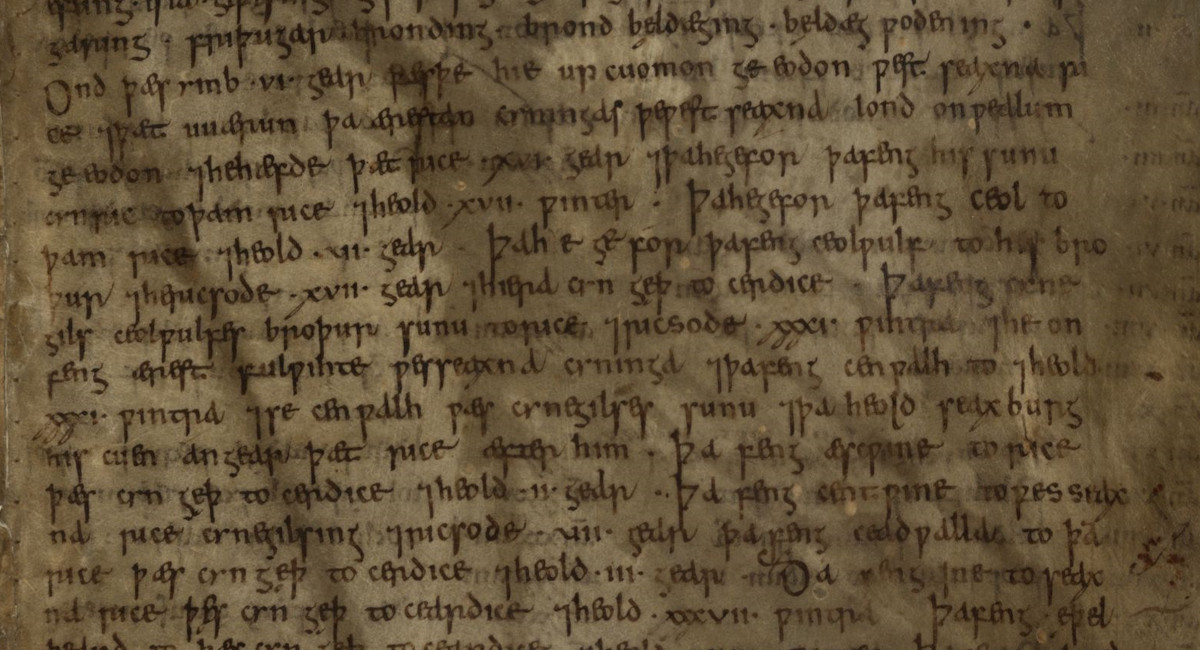 garing · friþugar bronding · brond beldæging · beldæg ƿodening ·
Ond þæs ymb ·vi· gear þæsþe hie up cuomon ge eodon ƿest seaxna ri
ce ⁊þæt uuærun þa ærestan cyningas þeƿest seaxna lond onƿealum
ge eodon ⁊hehæfde þæt rice ·xvi· gear ⁊þahegefor þafeng his sunu
cynric toþam rice ⁊heold ·xvii· ƿinter · Þahegefor þafeng ceol to
þam rice ⁊heold ·vii· gear · Þah e ge for þafeng ceolƿulf to his bro
þur ⁊hericsode ·xvii· gear ⁊hiera cyn geþ to cerdice · Þafeng cyne
gils ceolƿulfes broþur sunu torice ⁊ricsode ·xxxi· ƿintra ⁊he on
feng ærest fulƿihte ƿesseaxna cyninga ⁊þafeng cenƿalh to ⁊heold
xxxi· ƿintra ⁊se cenƿalh ƿæs cynegilses sunu ⁊þa heold seaxburg
his cuen an gear þæt rice æfter him · Þa feng æscƿine to rice
þæs cyn geþ to cerdice ⁊heold ·ii· gear · Þa feng centƿine toƿes seax
na rice cynegilsing ⁊ricsode ·vii· gear þafeng ceadƿalla to þā
rice þæs cyn geþ to cerdice ⁊heold ·iii· gear · Ða feng ine to seax
na rice þæs cyn geþ to ceardice ⁊heold ·xxxvii· ƿintra Þafeng eþel